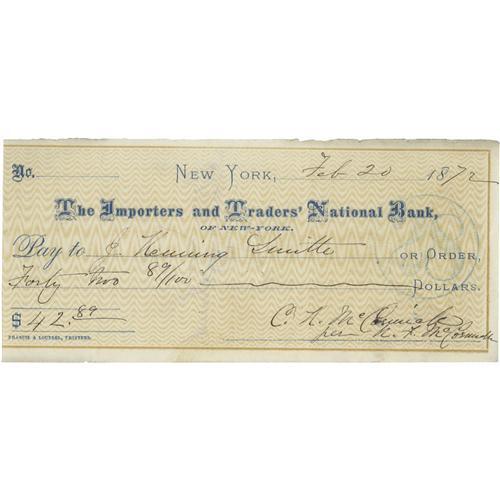 No. NEW YORK, Feb 20 1872
The Importers and Traders' National Bank,
OF NEW-YORK.
Pay to J. Heming Smith OR ORDER,
Forty two 89/100 DOLLARS.
$ 42.89
C. H. McCormick
per N. F. McCormick
FRANCIS & LOUTREL, PRINTERS.